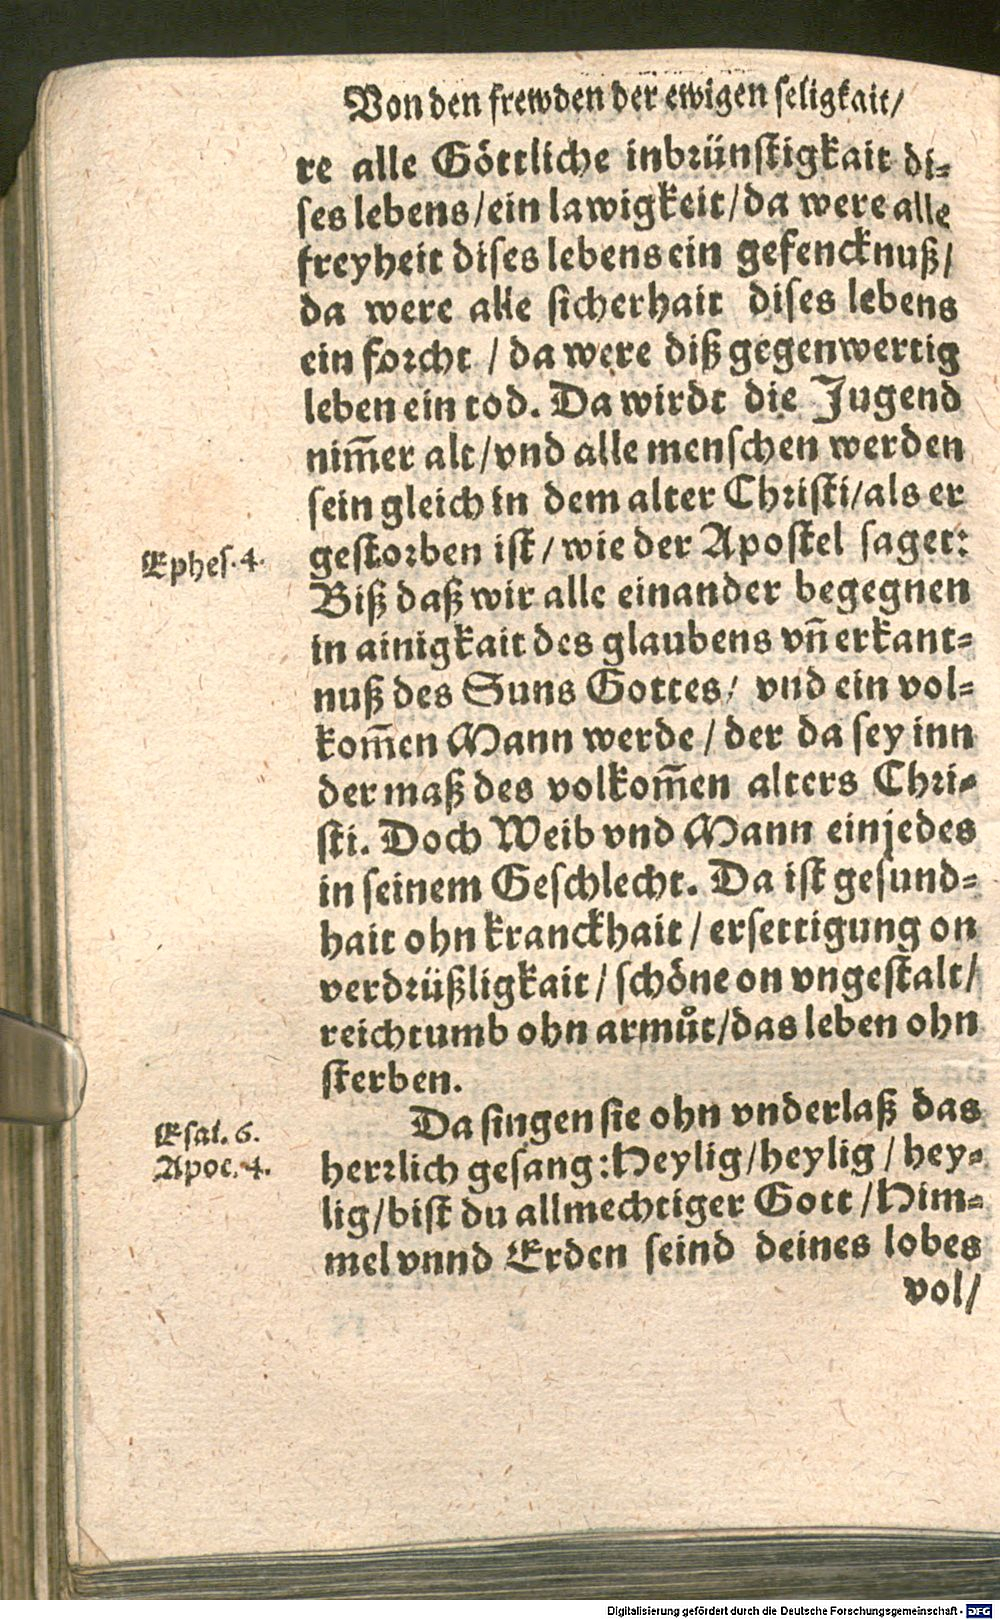 Von den frewden der ewigen seligkait/
re alle Göttliche inbrünstigkait di-
ses lebens/ein lawigkeit/da were alle
freyheit dises lebens ein gefencknuß/
da were alle sicherhait dises lebens
ein forcht / da were diß gegenwertig
leben ein tod. Da wirdt die Jugend
nim̃er alt/vnd alle menschen werden
sein gleich in dem alter Christi/als er
Ephes. 4. gestorben ist / wie der Apostel saget:
Biß daß wir alle einander begegnen
in ainigkait des glaubens vñ erkant-
nuß des Suns Gottes/ vnd ein vol-
kom̃en Mann werde / der da sey inn
der maß des volkom̃en alters Chri-
sti. Doch Weib vnd Mann einjedes
in seinem Geschlecht. Da ist gesund-
hait ohn kranckhait / ersettigung on
verdrüßligkait / schöne on vngestalt/
reichtumb ohn armůt/das leben ohn
sterben.
Da singen sie ohn vnderlaß das
Esai. 6.
Apoc. 4. herrlich gesang: Heylig/heylig / hey-
lig/bist du allmechtiger Gott / Him-
mel vnnd Erden seind deines lobes
vol/
Digitalisierung gefördert durch die Deutsche Forschungsgemeinschaft - DFG